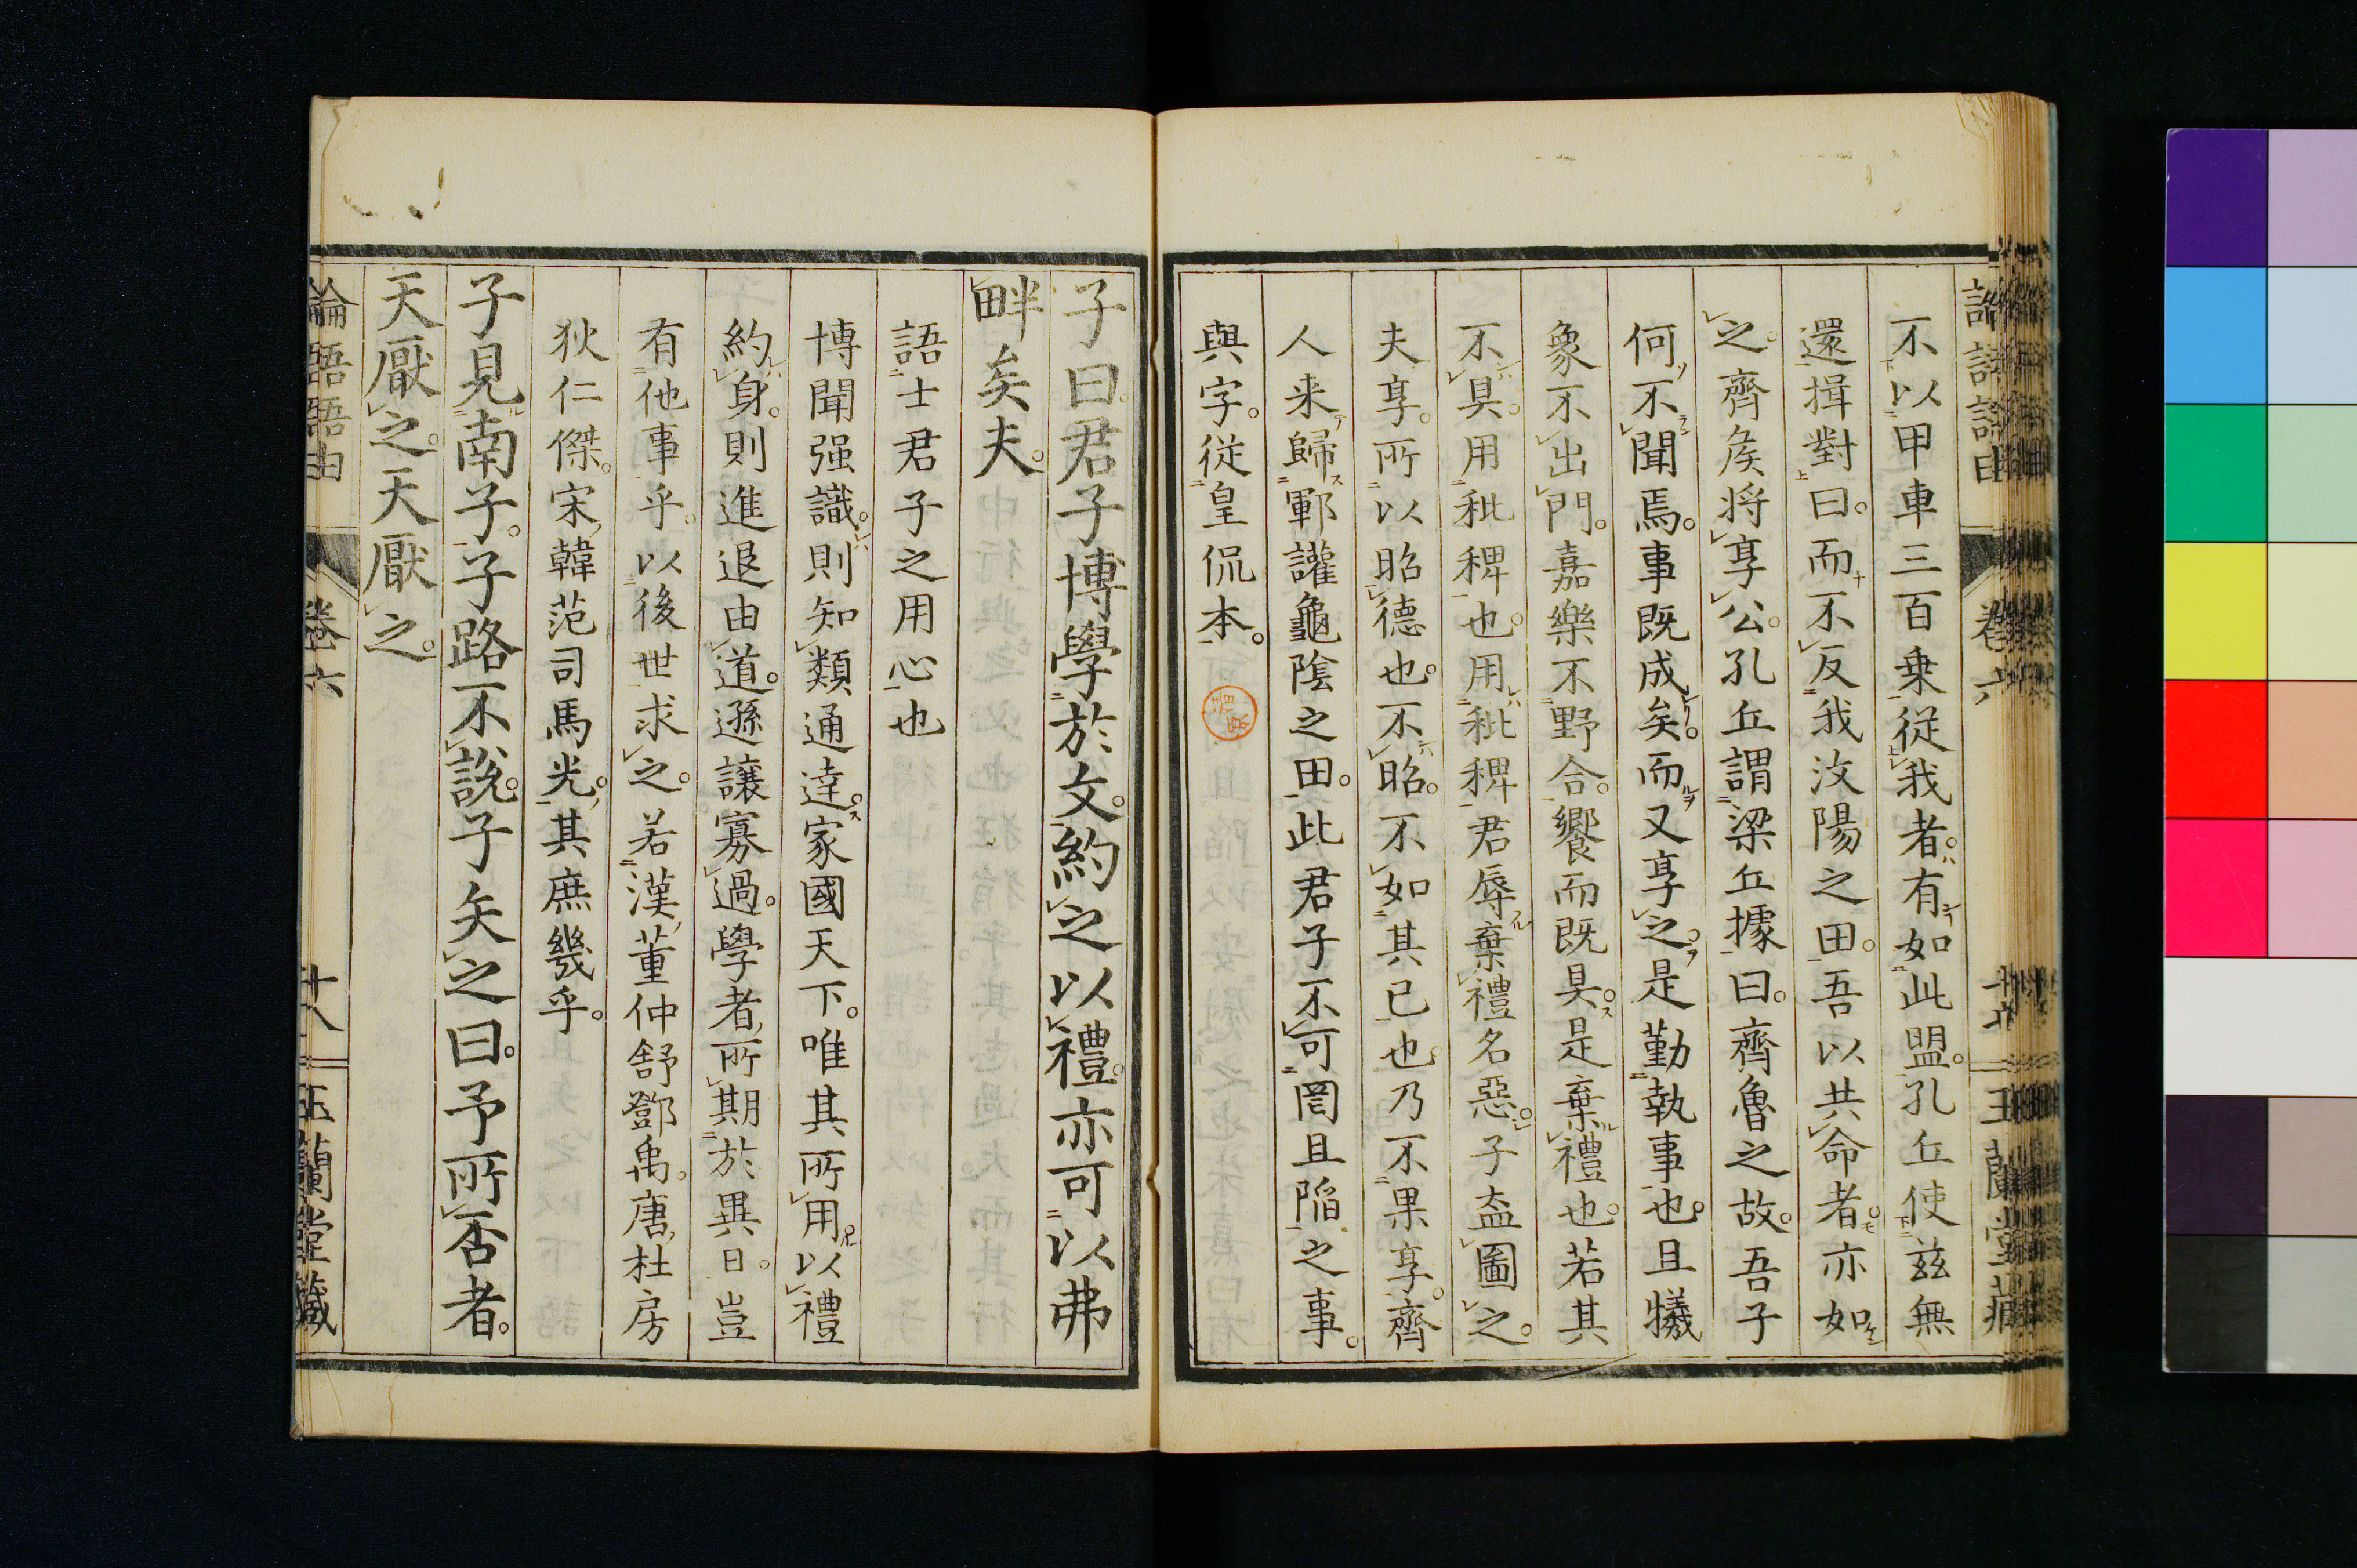 不以甲車三百乗從我者。有如此盟。孔丘使兹無
還揖對曰。而不反我汶陽之田。吾以共命者。亦如
之。齊矦将享公。孔丘謂梁丘據曰。齊魯之故。吾子
何不聞焉。事既成矣。而又享之。是勤執事也。且犧
象不出門。嘉樂不野合。饗而既具。是棄禮也。若其
不具。用秕稗也。用秕稗君辱棄禮名惡。子盍圖之。
夫享。所以昭德也。不昭。不如其已也。乃不果享。齊
人来歸鄆讙龜陰之田。此君子不可罔且陷之事。
與字。從皇侃本。
子曰。君子博學於文。約之以禮。亦可以弗
畔矣夫。
語士君子之用心也
博聞强識。則知類通達。家國天下。唯其所用。以禮
約身。則進退由道。遜讓寡過。學者所期於異日。豈
有他事乎。以後世求之。若漢董仲舒鄧禹。唐杜房
狄仁傑。宋韓范司馬光。其庶幾乎。
子見南子。子路不說。子矢之曰。予所否者。
天厭之。天厭之。
論語語由 卷六 十八 玉蘭堂藏